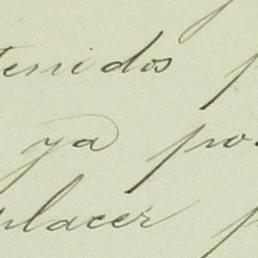 tenidos p
ya po
placer p